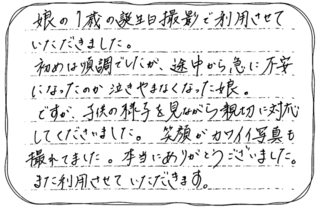 娘の1歳の誕生日撮影で利用させて
いただきました。
初めは順調でしたが、途中から急に不安
になったのか泣きやまなくなった娘。
ですが、子供の様子を見ながら親切に対応
してくださいました。笑顔がカワイイ写真も
撮れてました。本当にありがとうございました。
また利用させていただきます。